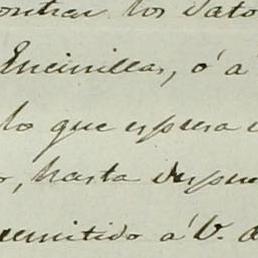 contrar los dato
Encinillas, ó a
lo que espresa
, hasta despue
remitido á V. d